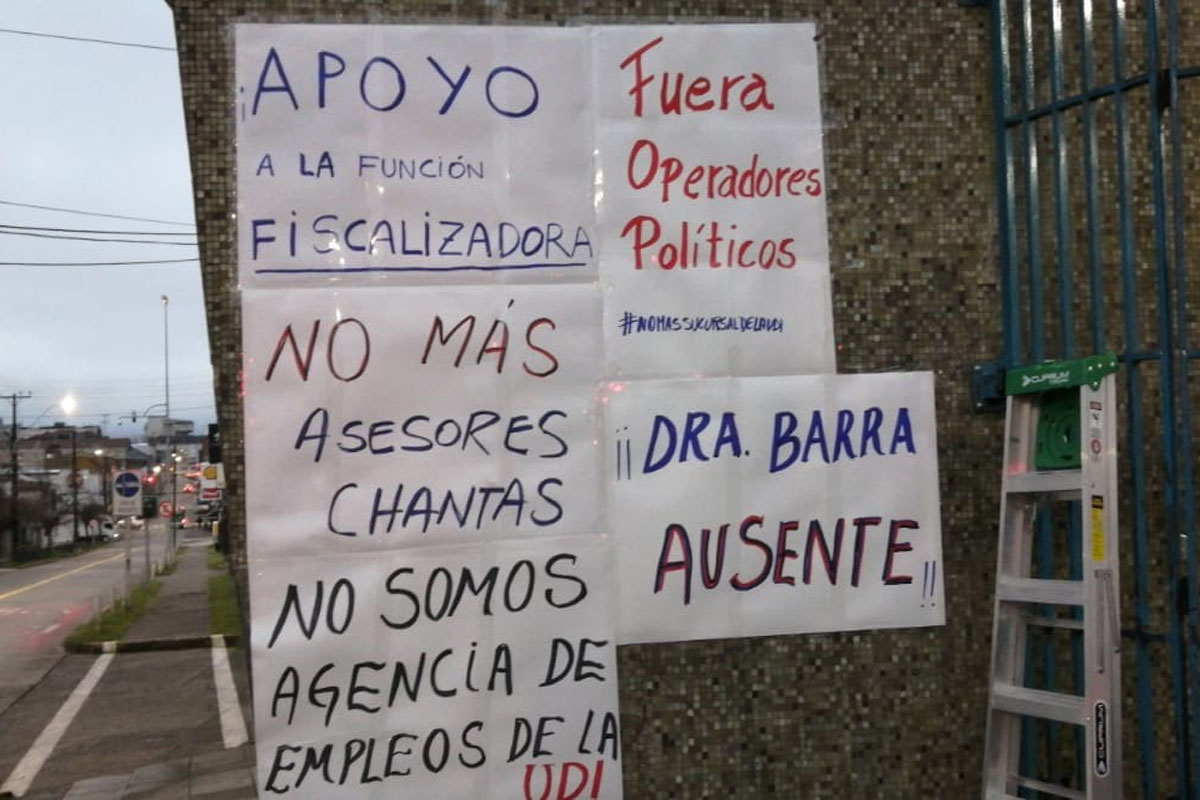 ¡APOYO
A LA FUNCIÓN
FISCALIZADORA
NO MÁS
ASESORES
CHANTAS
NO SOMOS
AGENCIA DE
EMPLEOS DE LA
UDI
Fuera
Operadores
Políticos
#NOMASSUCURSALDELAUDI
¡¡DRA. BARRA
AUSENTE!!
CUPRUM
CUPRUM